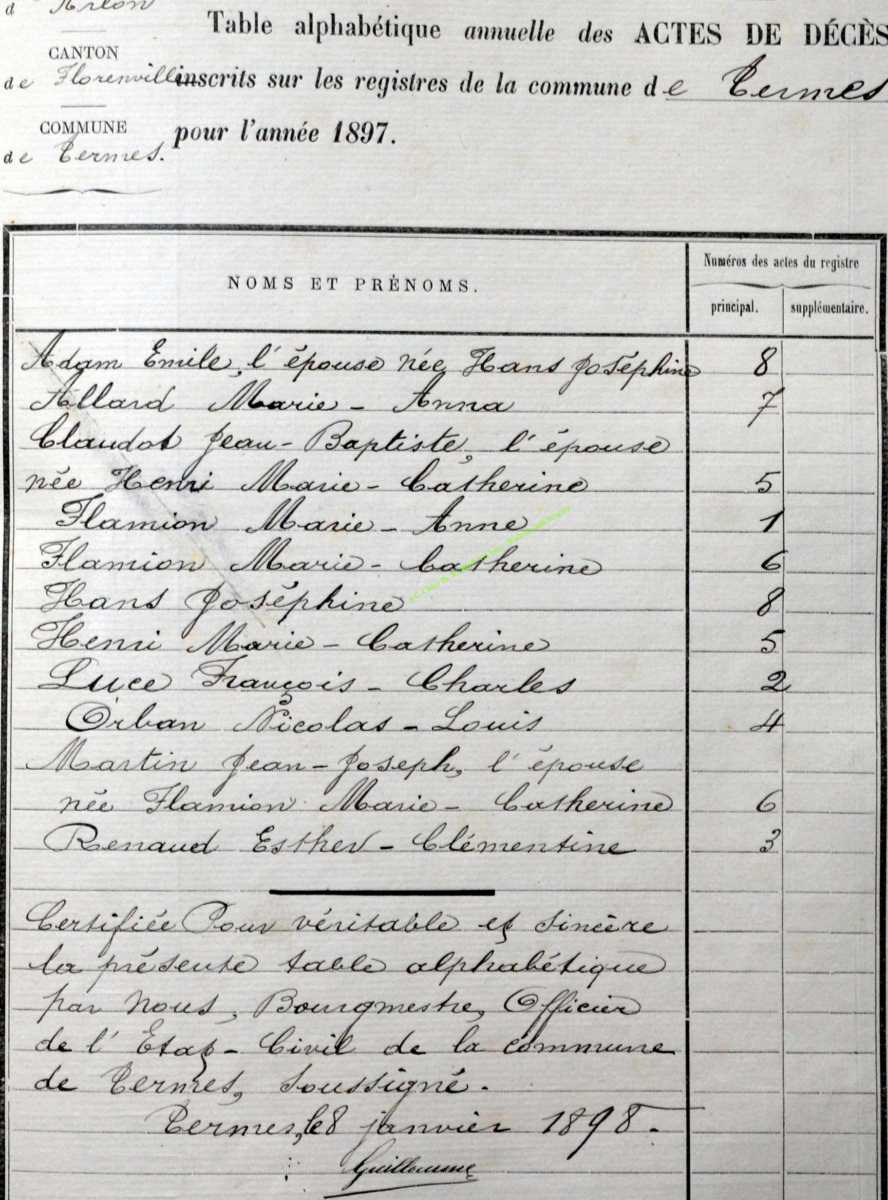 d' Arlon
CANTON
de Florenville
COMMUNE
de Termes.
Table alphabétique annuelle des ACTES DE DÉCÈS
inscrits sur les registres de la commune de Termes
pour l'année 1897.
NOMS ET PRÉNOMS.
Numéros des actes du registre
principal. supplémentaire.
Adam Emile, l'épouse née Hans Joséphine 8
Allard Marie - Anna 7
Claudot Jean - Baptiste, l'épouse
née Henri Marie - Catherine 5
Flamion Marie - Anne 1
Flamion Marie - Catherine 6
Hans Joséphine 8
Henri Marie - Catherine 5
Luce François - Charles 2
Orban Nicolas - Louis 4
Martin Jean - Joseph, l'épouse
née Flamion Marie - Catherine 6
Renaud Esther - Clémentine 3
Certifiée Pour véritable et sincère
la présente table alphabétique
par nous, Bourgmestre, Officier
de l'Etat - Civil de la commune
de Termes, soussigné.
Termes, le 8 janvier 1898.
Guillaume